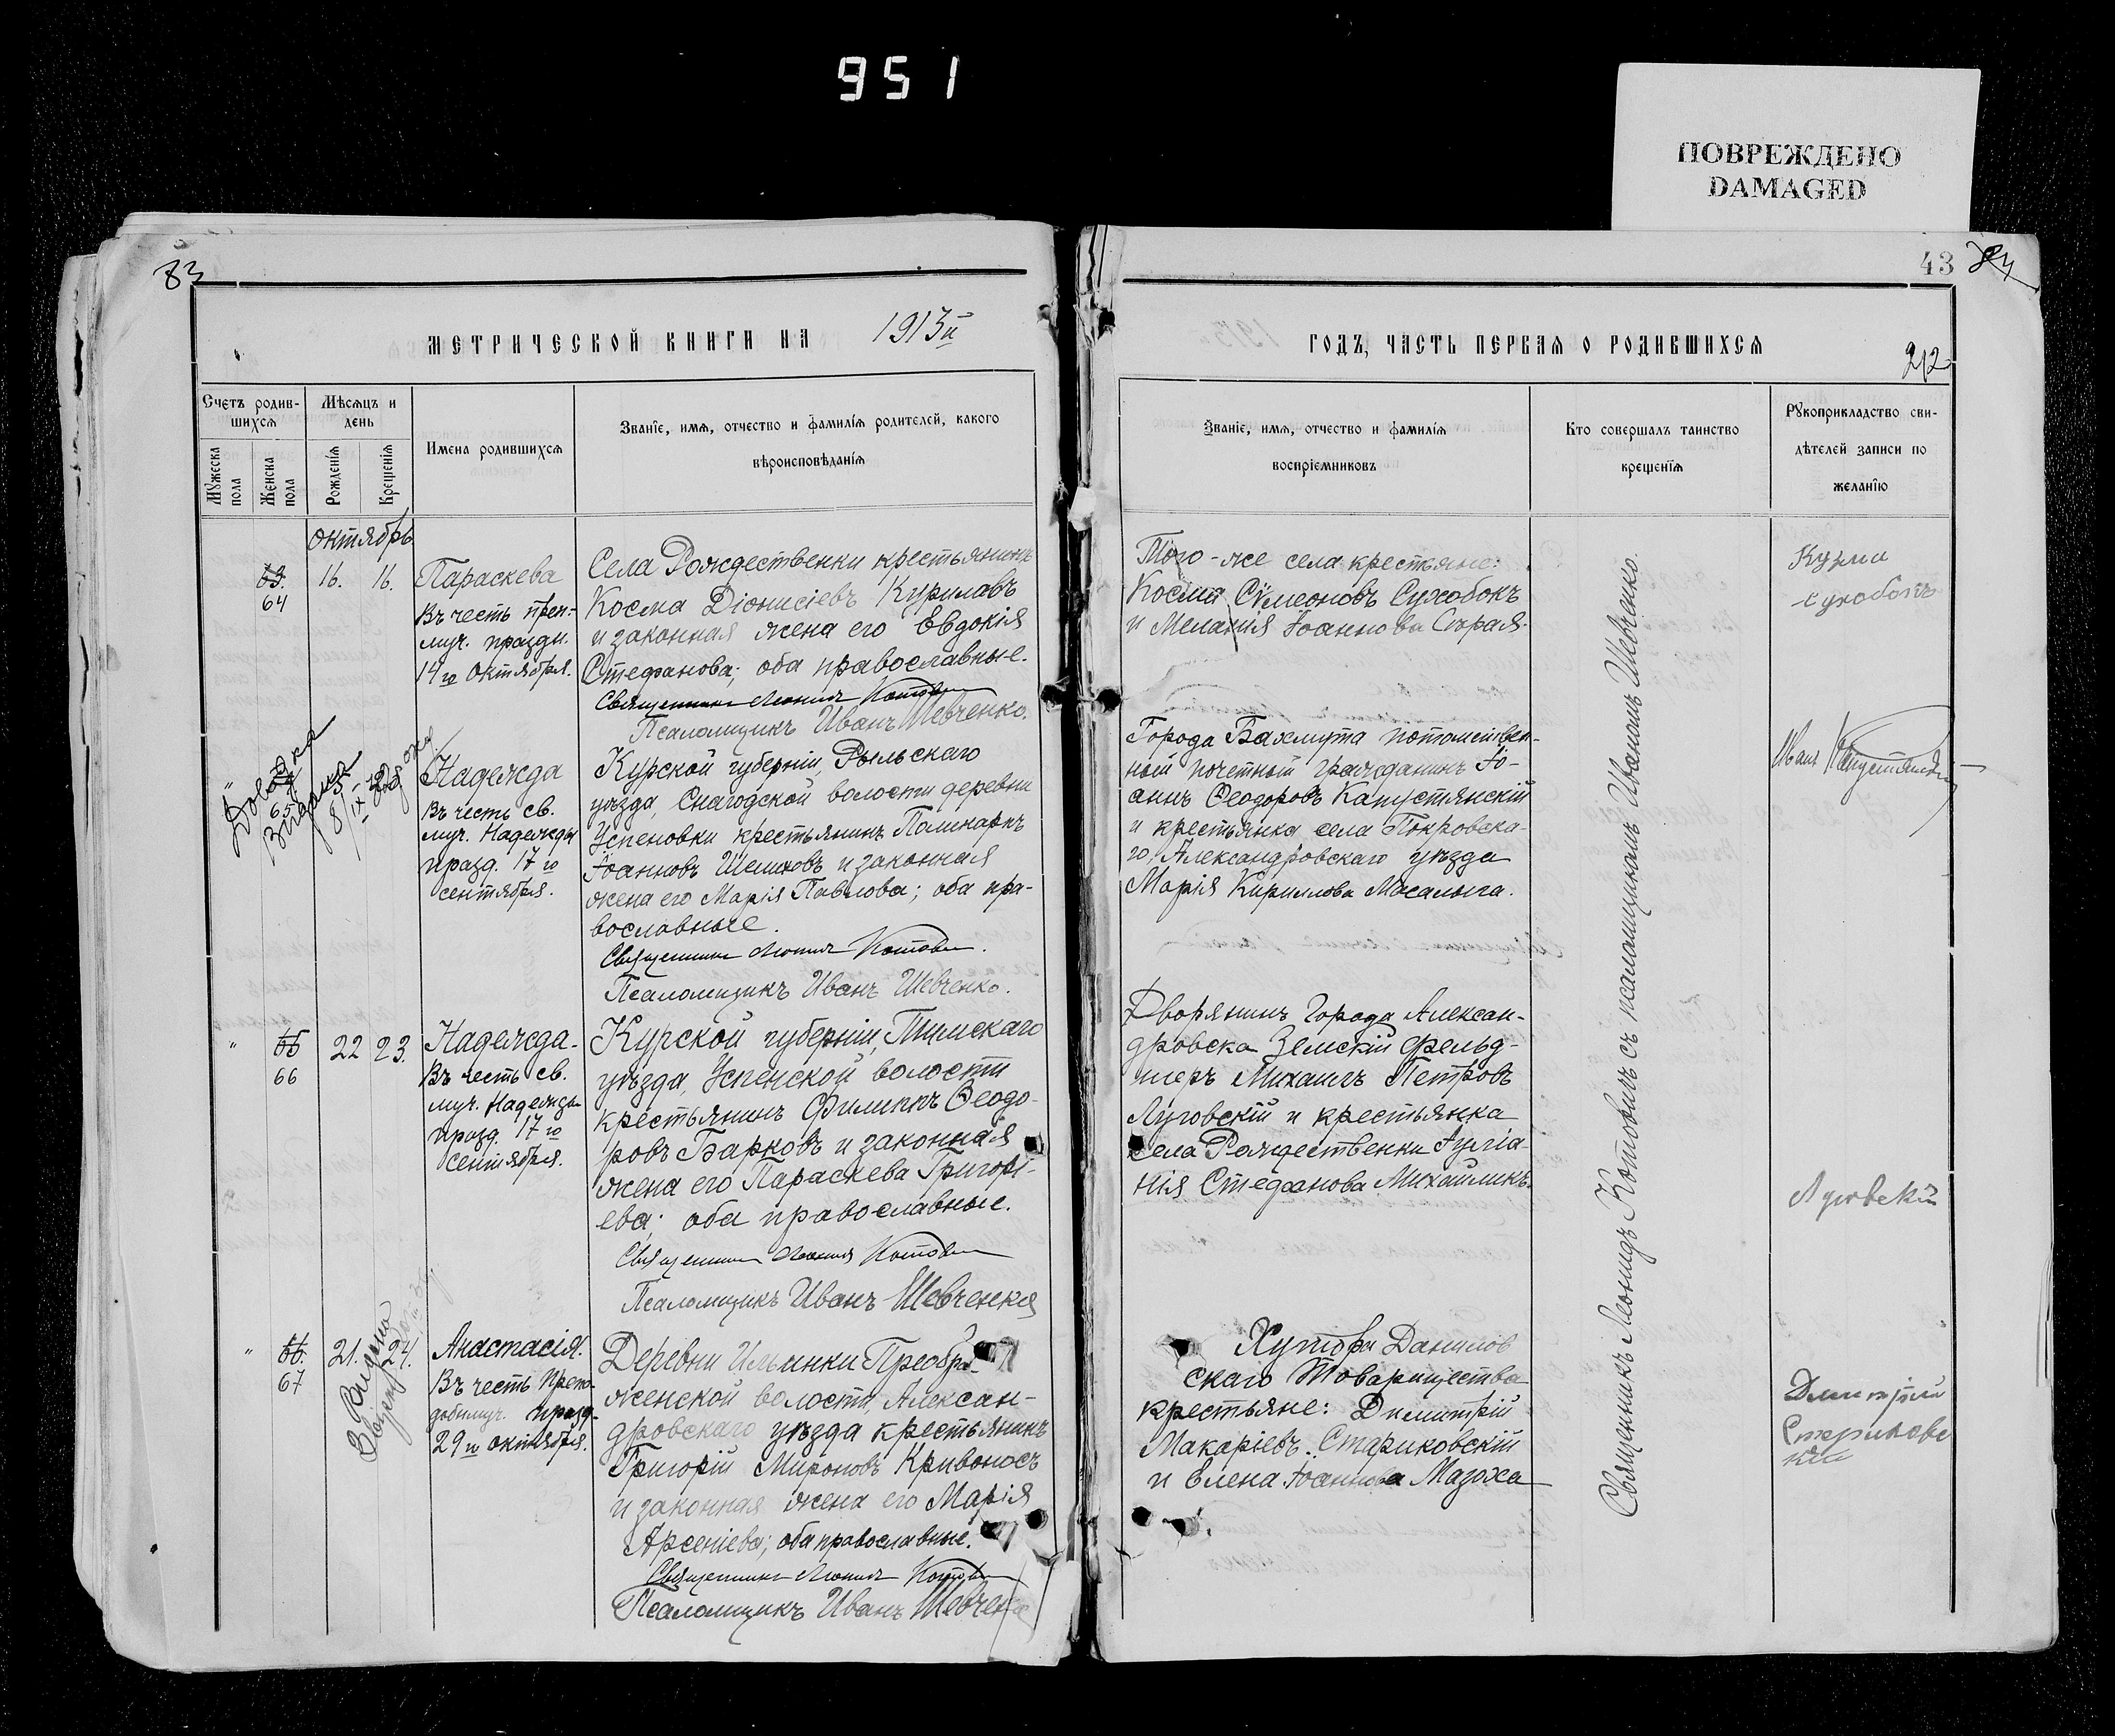 951
ПОВРЕЖДЕНО
DAMAGED
83
МЕТРИЧЕСКОЙ КНИГИ НА 1913й
Счетъ родив-
шихся
Мѣсяцъ и
день
Имена родившихся
Званіе, имя, отчество и фамилія родителей, какого
вѣроисповѣданія
Мужеска
пола
Женска
пола
Рожденія
Крещенія
Октябрь
63.
64
16.
16.
Параскева
Въ честь преп.
муч. праздн.
14го Октября.
Села Рождественки крестьянинъ
Косма Діонисіевъ Курилавъ
и законная жена его Евдокія
Стефанова; оба православные.
Священникъ Леонидъ Котовъ
Псаломщикъ Иванъ Шевченко.
65
Надежда
Въ честь св.
муч. Надежды
празд. 17го
сентября.
Курской губерніи, Рыльскаго
уѣзда, Снагодской волости деревни
Успеновки крестьянинъ Поликарпъ
Іоанновъ Шелиховъ и законная
жена его Марія Павлова; оба пра-
вославные.
Священникъ Леонидъ Котовъ.
Псаломщикъ Иванъ Шевченко.
"
65
66
22
23.
Надежда.
Въ честь св.
муч. Надежды
празд. 17го
сентября.
Курской губерніи, Тимскаго
уѣзда, Успенской волости
крестьянинъ Филиппъ Ѳеодо-
ровъ Барковъ и законная
жена его Параскева Григорі-
ева; оба православные.
Священникъ Леонидъ Котовъ
Псаломщикъ Иванъ Шевченко
"
66.
67
21.
24.
Анастасія.
Въ честь Препо-
добмуч. празд.
29го октября.
Деревни Ильинки Преобра-
женской волости, Алексан-
дровскаго уѣзда крестьянинъ
Григорій Мироновъ Кривоносъ
и законная жена его Марія
Арсеніева; оба православные.
Священникъ Леонидъ Котовъ
Псаломщикъ Иванъ Шевченко
43
84
ГОДЪ, ЧАСТЬ ПЕРВАЯ О РОДИВШИХСЯ
212
Званіе, имя, отчество и фамилія
воспріемниковъ
Кто совершалъ таинство
крещенія
Рукоприкладство сви-
дѣтелей записи по
желанію
Того-же села крестьяне:
Косма Сѵмеоновъ Сухобокъ
и Меланія Іоаннова Старая.
Города Бахмута потомствен-
ный почетный гражданинъ Іо-
аннъ Ѳеодоровъ Капустянскій
и крестьянка села Покровска-
го, Александровскаго уѣзда
Марія Кириллова Масалыга.
Дворянинъ Города Алексан-
дровска Земскій фельд-
шеръ Михаилъ Петровъ
Луговскій и крестьянка
села Рождественки Іуліа-
нія Стефанова Михайликъ.
Хутора Данилов
скаго Товарищества
крестьяне: Димитрій
Макаріевъ Стариковскій
и Елена Іоаннова Мазоха
Священникъ Леонидъ Котовъ съ псаломщикомъ Иваномъ Шевченко.
Кузма
Сухобокъ
Иванъ Капустянскій
Луговскій
Дмитрій
Стариковс
кій